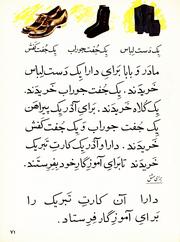 یک دَست لِباس یک جُفت جوراب یک جُفت کَفش
مادَر و بابا بَرایِ دارا یک دَست لِباس
خَریدَند. یک جُفت جوراب خَریدَند.
یک کُلاه خَریدَند. بَرایِ آذَر یک پیراهَن
خَریدَند. یک جُفت جوراب وَ یک جُفت کَفش
خَریدَند. دارا وَ آذَر یک کارتِ تَبریک
خَریدَند تا بَرایِ آموزگارِ خود بِفِرِستَند.
دارا آن کارتِ تَبریک را
بَرایِ آموزگار فِرِستاد.
۷۱